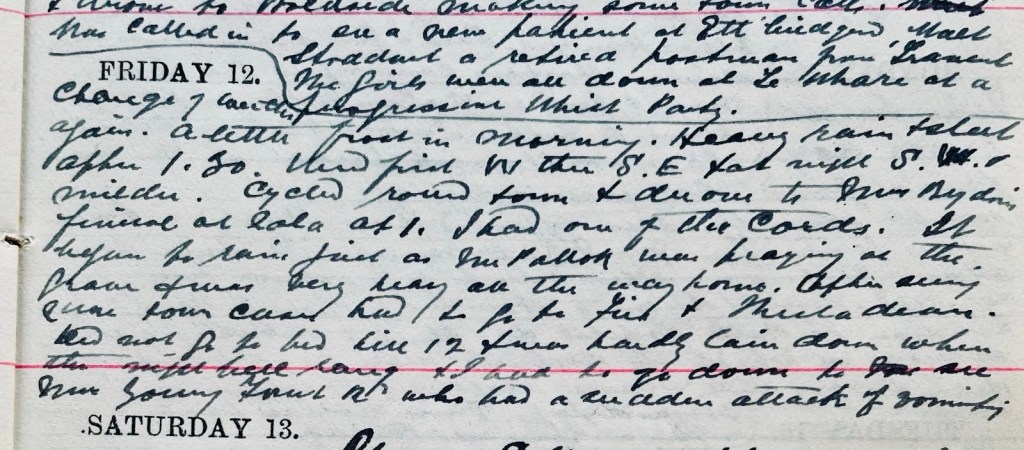 & drove to Woodside making some town calls.
Was called in to see a new patient at Ettbridgend, Matt
Stoddart a retired postman from Tranent
FRIDAY 12. The girls were all down at Le Whare at a
Change of weather progressive Whist Party.
again. A little frost in morning. Heavy rain & sleet
after 1.30. Wind first W then S.E & at night S.W. &
milder. Cycled round town & drove to Mrs Brydon's
funeral at 1. I had one of the Cords. It
began to rain just as Mr Pollok was praying at the
Grave & was very heavy all the way home. After seeing
some town cases had to go to &
Did not go to bed till 12 & was hardly lain down when
the night bell rang & I had to go down to see
Mrs Young Forest Rd who had a sudden attack of vomiting
SATURDAY 13.